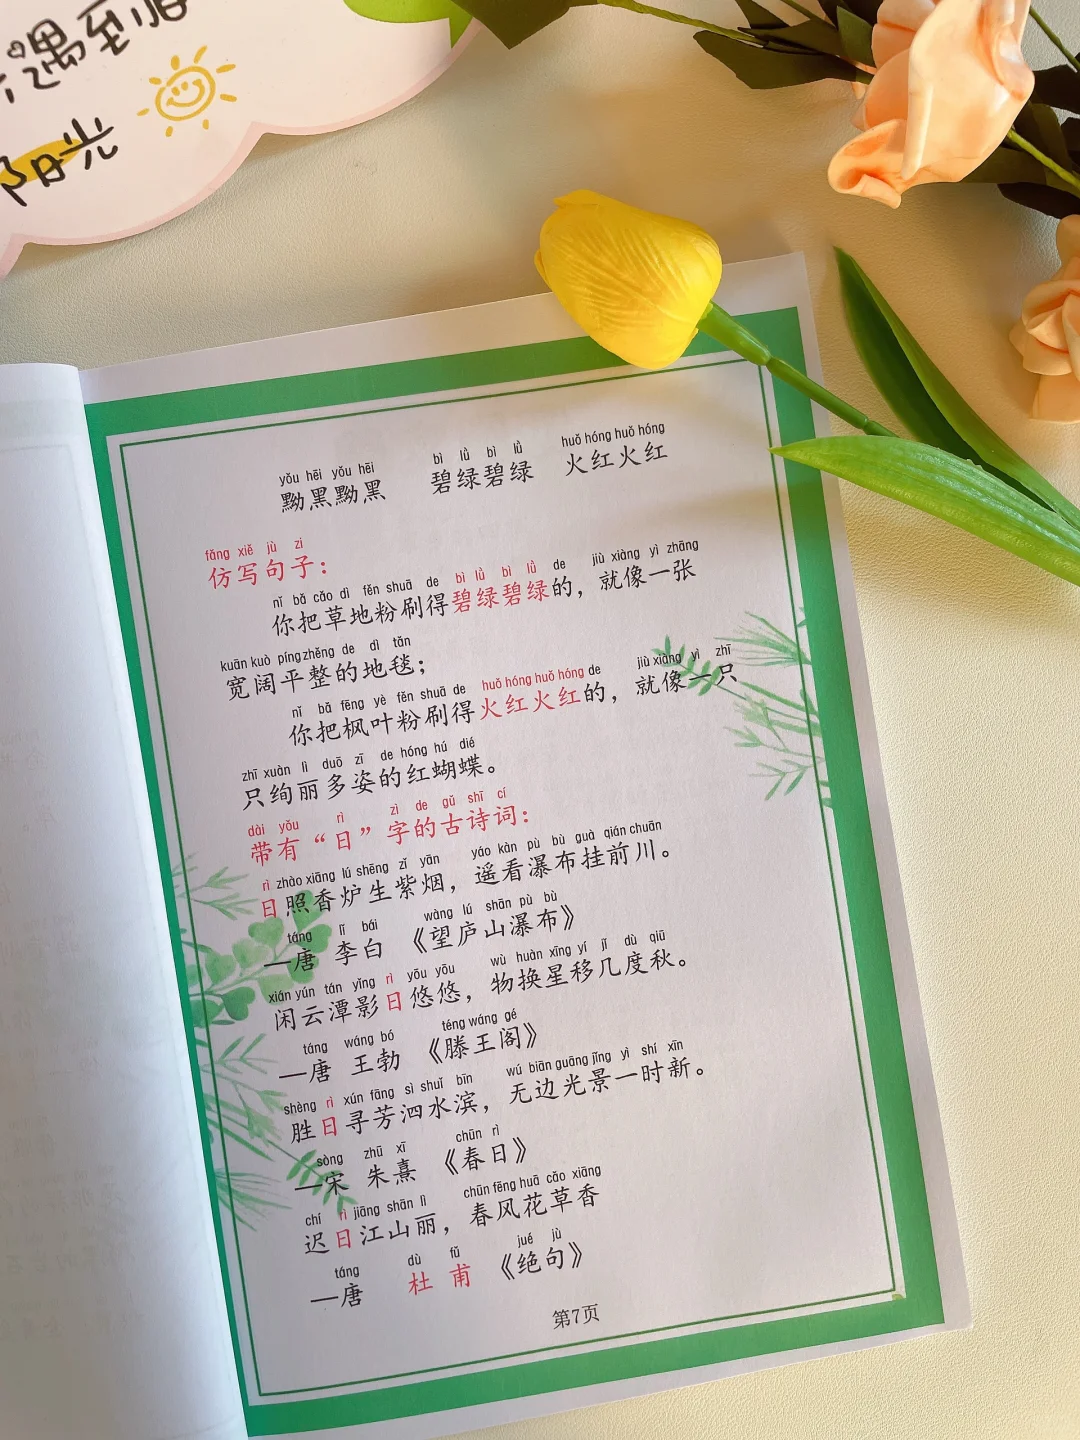 遇到
阳光
yǒu hēi yǒu hēi bì lǜ bì lǜ huǒ hóng huǒ hóng
黝黑黝黑 碧绿碧绿 火红火红
fǎng xiě jù zi
仿写句子：
nǐ bǎ cǎo dì fěn shuā de bì lǜ bì lǜ de jiù xiàng yì zhāng
你把草地粉刷得碧绿碧绿的，就像一张
kuān kuò píng zhěng de dì tǎn
宽阔平整的地毯；
nǐ bǎ fēng yè fěn shuā de huǒ hóng huǒ hóng de jiù xiàng yì zhī
你把枫叶粉刷得火红火红的，就像一只
zhī xuàn lì duō zī de hóng hú dié
只绚丽多姿的红蝴蝶。
dài yǒu rì zì de gǔ shī cí
带有“日”字的古诗词：
rì zhào xiāng lú shēng zǐ yān yáo kàn pù bù guà qián chuān
日照香炉生紫烟，遥看瀑布挂前川。
táng lǐ bái wàng lú shān pù bù
—唐 李白 《望庐山瀑布》
xián yún tán yǐng rì yōu yōu wù huàn xīng yí jǐ dù qiū
闲云潭影日悠悠，物换星移几度秋。
táng wáng bó téng wáng gé
—唐 王勃 《滕王阁》
shèng rì xún fāng sì shuǐ bīn wú biān guāng jǐng yì shí xīn
胜日寻芳泗水滨，无边光景一时新。
sòng zhū xī chūn rì
—宋 朱熹 《春日》
chí rì jiāng shān lì chūn fēng huā cǎo xiāng
迟日江山丽，春风花草香
táng dù fǔ jué jù
—唐 杜甫 《绝句》
第7页